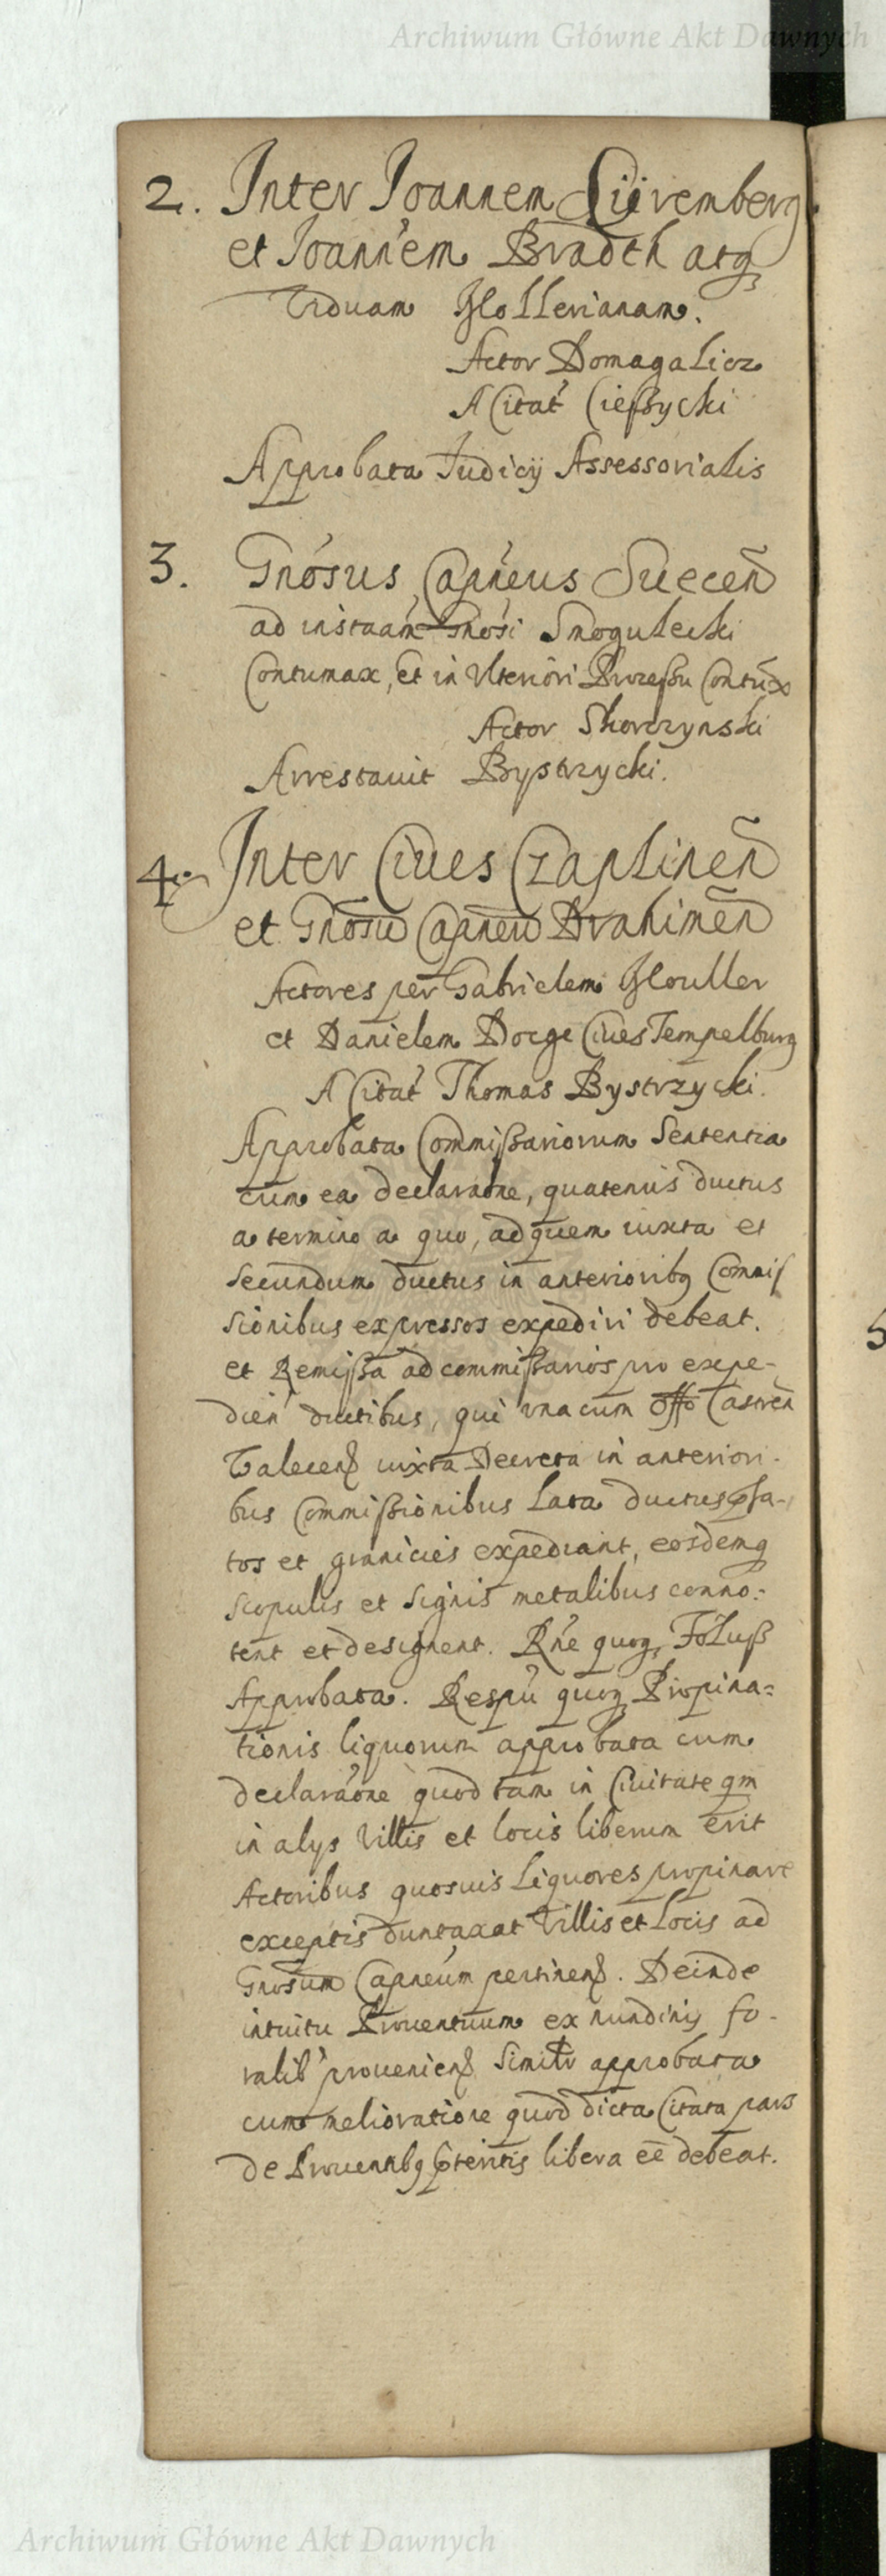 Archiwum Główne Akt Dawnych
2. Inter Joannem Cüremberg
et Joannem Bradth atq
Viduam Hollerianam.
Actor Domagalicz
A Citat Cießycki
Approbata Judicij Assessorialis
3. Gnosus Capneus Suecen
ad instaam Gnosi Smogulecki
Contumax, et in Ulteriori Processu Contux
Actor Skorczynski
Arrestauit Bystrzycki.
4. Inter Ciues Czaplinen
et Gnosu Capneu Drahimen
Actores per Gabrielem Houller
et Danielem Doege Ciues Tempelburg
A Citat Thomas Bystrzycki.
Approbata Commissariorum Sententia
cum ea declaraone, quatenus ductus
a termino a quo, ad quem iuxta et
secundum ductus in anterioribq Commis
sionibus expressos expediri debeat.
et Remissa ad commissarios pro expe-
dien ductibus, qui vna cum Offo Castren
Valecens iuxta Decreta in anteriori-
bus Commissionibus Lata ductus psa-
tos et granicies expediant, eosdemq
scopulis et signis metalibus conno-
tent et designent. Rne quoq, Foluß
Approbata. Respu quoq Propina=
tionis liquorum approbata cum
declaraone quod tam in Ciuitate qm
in alys Villis et locis liberum erit
Actoribus quosuis Liquores propinare
exceptis duntaxat Villis et Locis ad
Gnosum Capneum pertinens. Deinde
intuitu Prouentuum ex nundinis fo-
ralib proueniens similr approbata
cum melioratione quod dicta Citata pars
de Prouentibq libera ee debeat.
Archiwum Główne Akt Dawnych